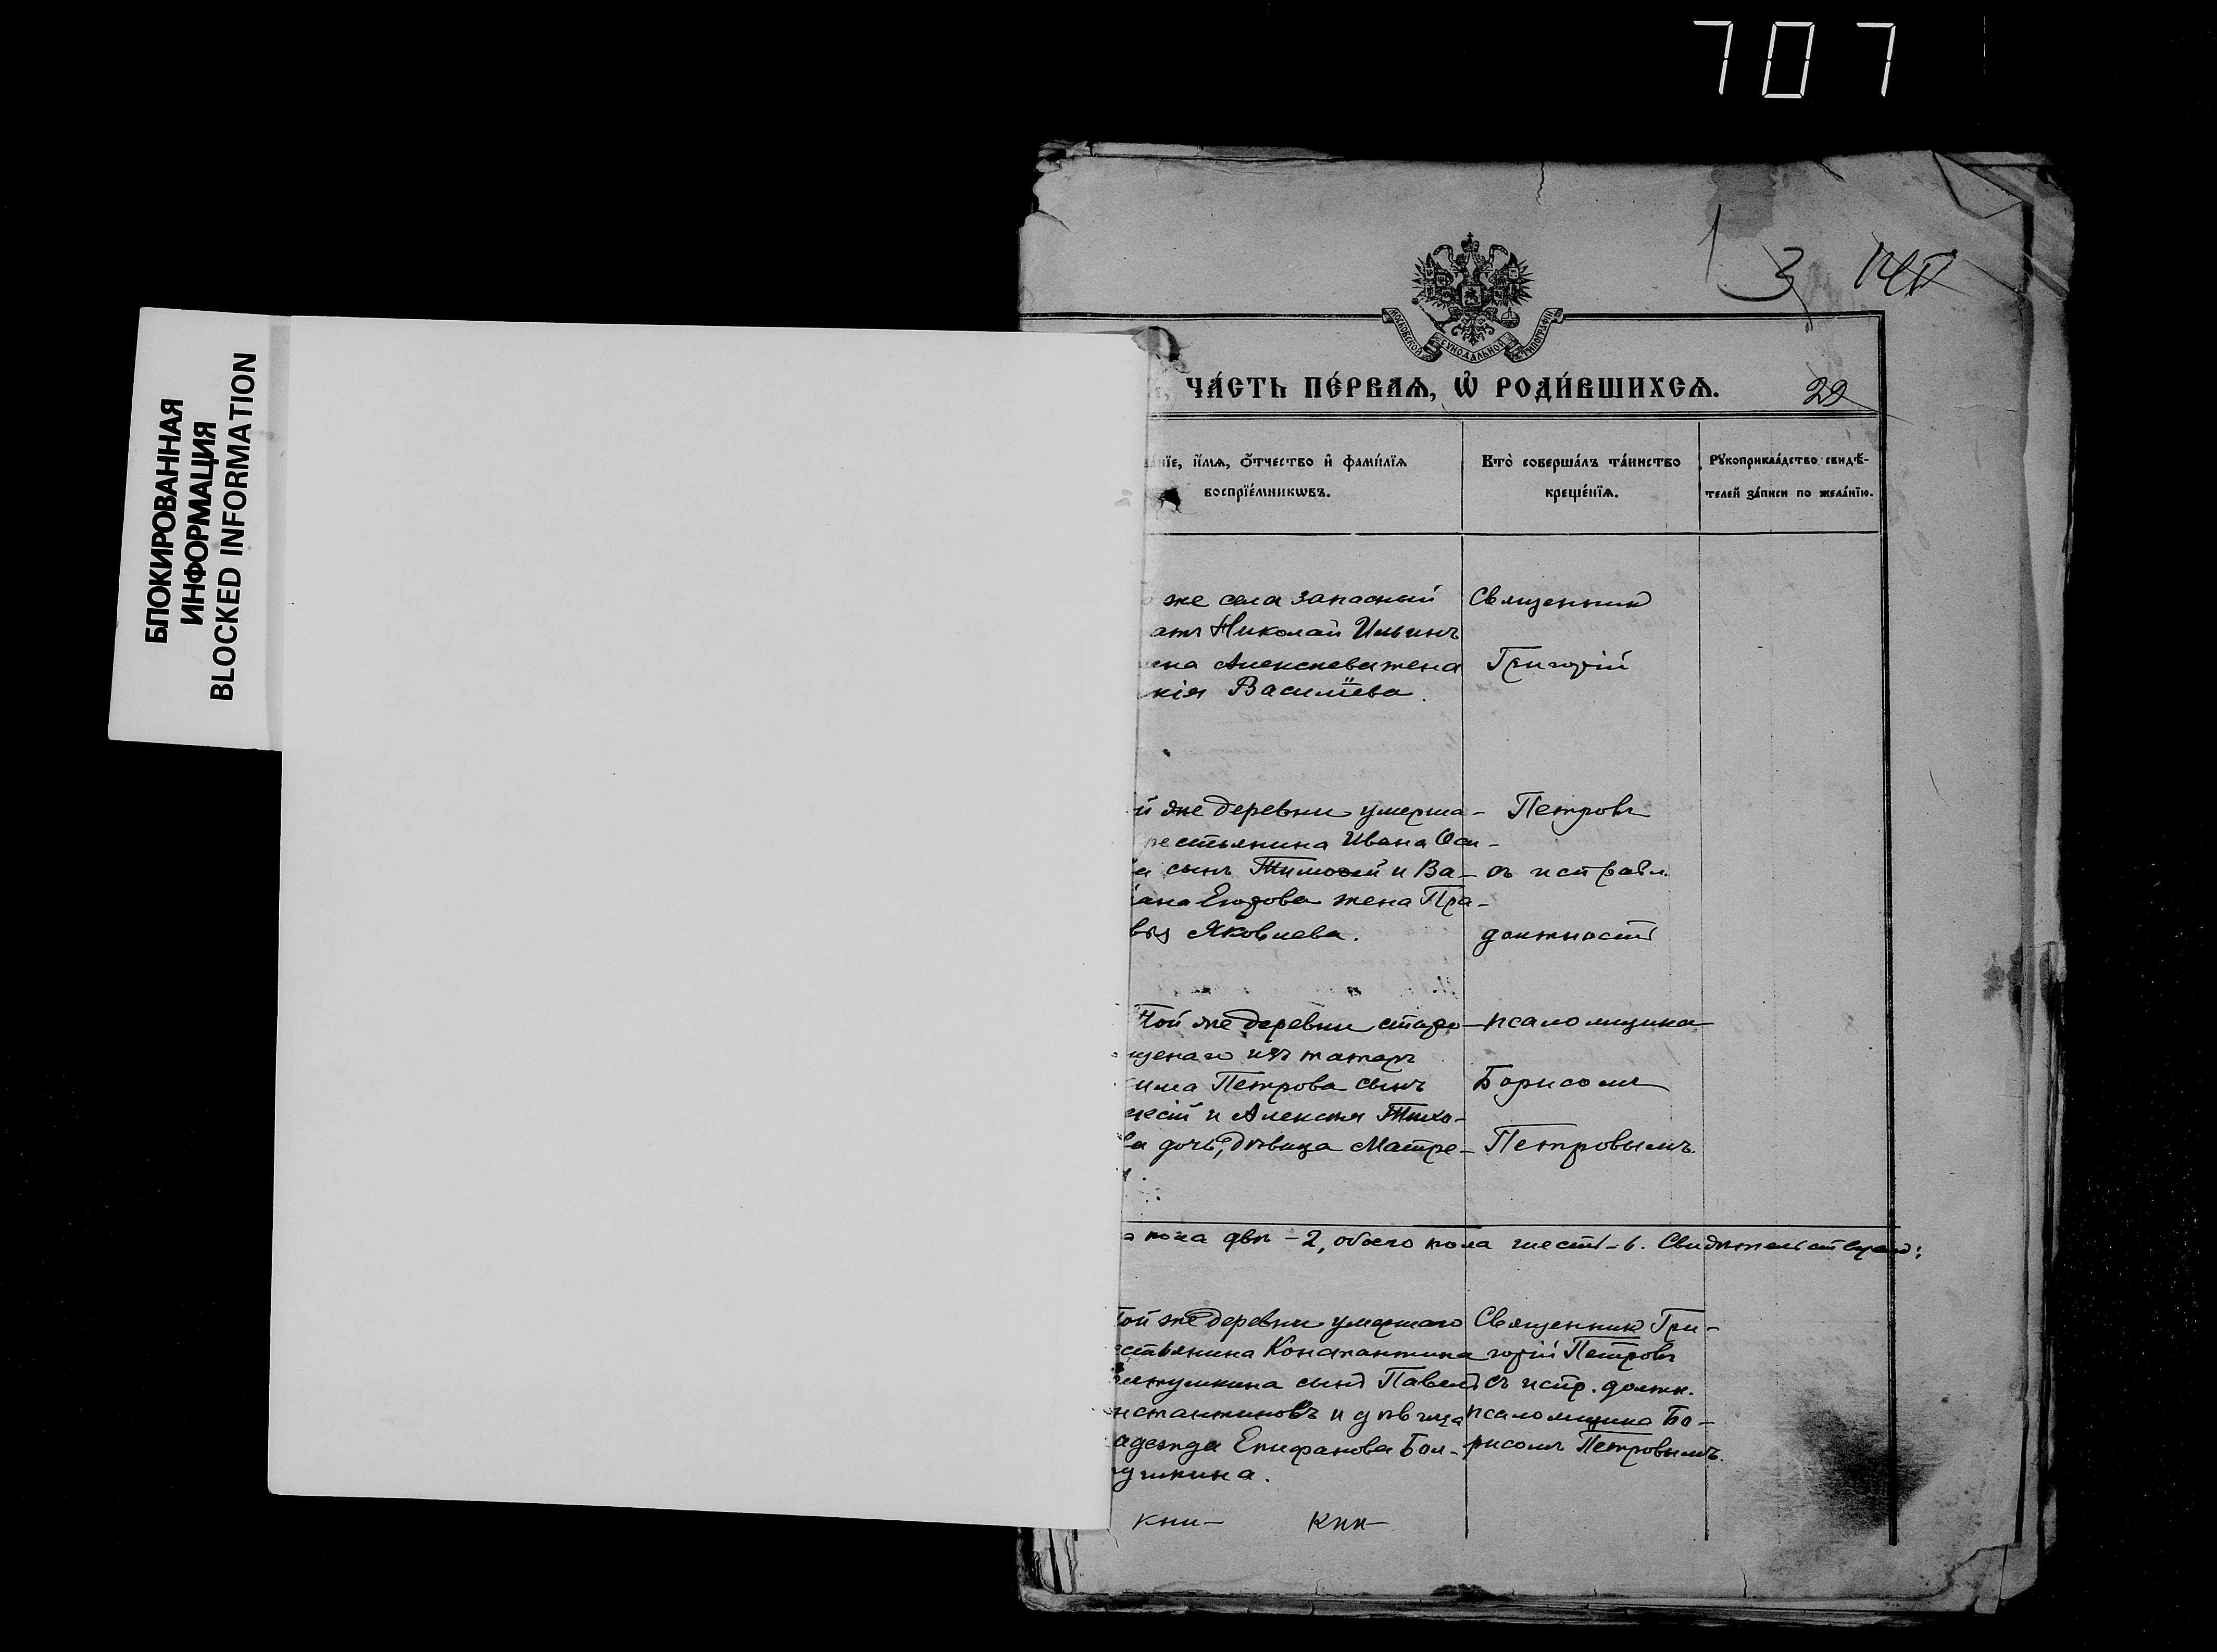 707
БЛОКИРОВАННАЯ
ИНФОРМАЦИЯ
BLOCKED INFORMATION
3
МОСКОВСКОЙ СУНОДАЛЬНОЙ ТИПОГРАФІИ
ЧА́СТЬ ПЕ́РВАѦ, Ѡ҆ РОДИ́ВШИХСѦ.
29
и҆́мѧ, ѻ҆́тчество и҆ фами́лїѧ
воспрїе́мникѡвъ.
Кто̀ соверша́лъ та́инство
креще́нїѧ.
Рꙋкоприкла́дство свидѣ́-
телей за́писи по жела́нїю.
же села запасный
Николай Ильинъ
Алексѣева жена
Васильева.
Священникъ
Григорій
же деревни умерша-
Ивана Оси-
сынъ Тимоѳей и Ва-
жена Пра-
Яковлева.
Петровъ
съ исправл.
должность
Той же деревни старо-
изъ татаръ
Петрова сынъ
и Алексѣя Тихо-
дочь, дѣвица Матре-
псаломщика
Борисомъ
Петровымъ.
пола двѣ - 2, обоего пола шесть - 6. Свидѣтельствуемъ:
Той же деревни умершаго
Константина
сынъ Павелъ
и дѣвица
Епифанова Бол-
Священникъ Гри-
горій Петровъ
съ испр. должн.
псаломщика Бо-
рисомъ Петровымъ.